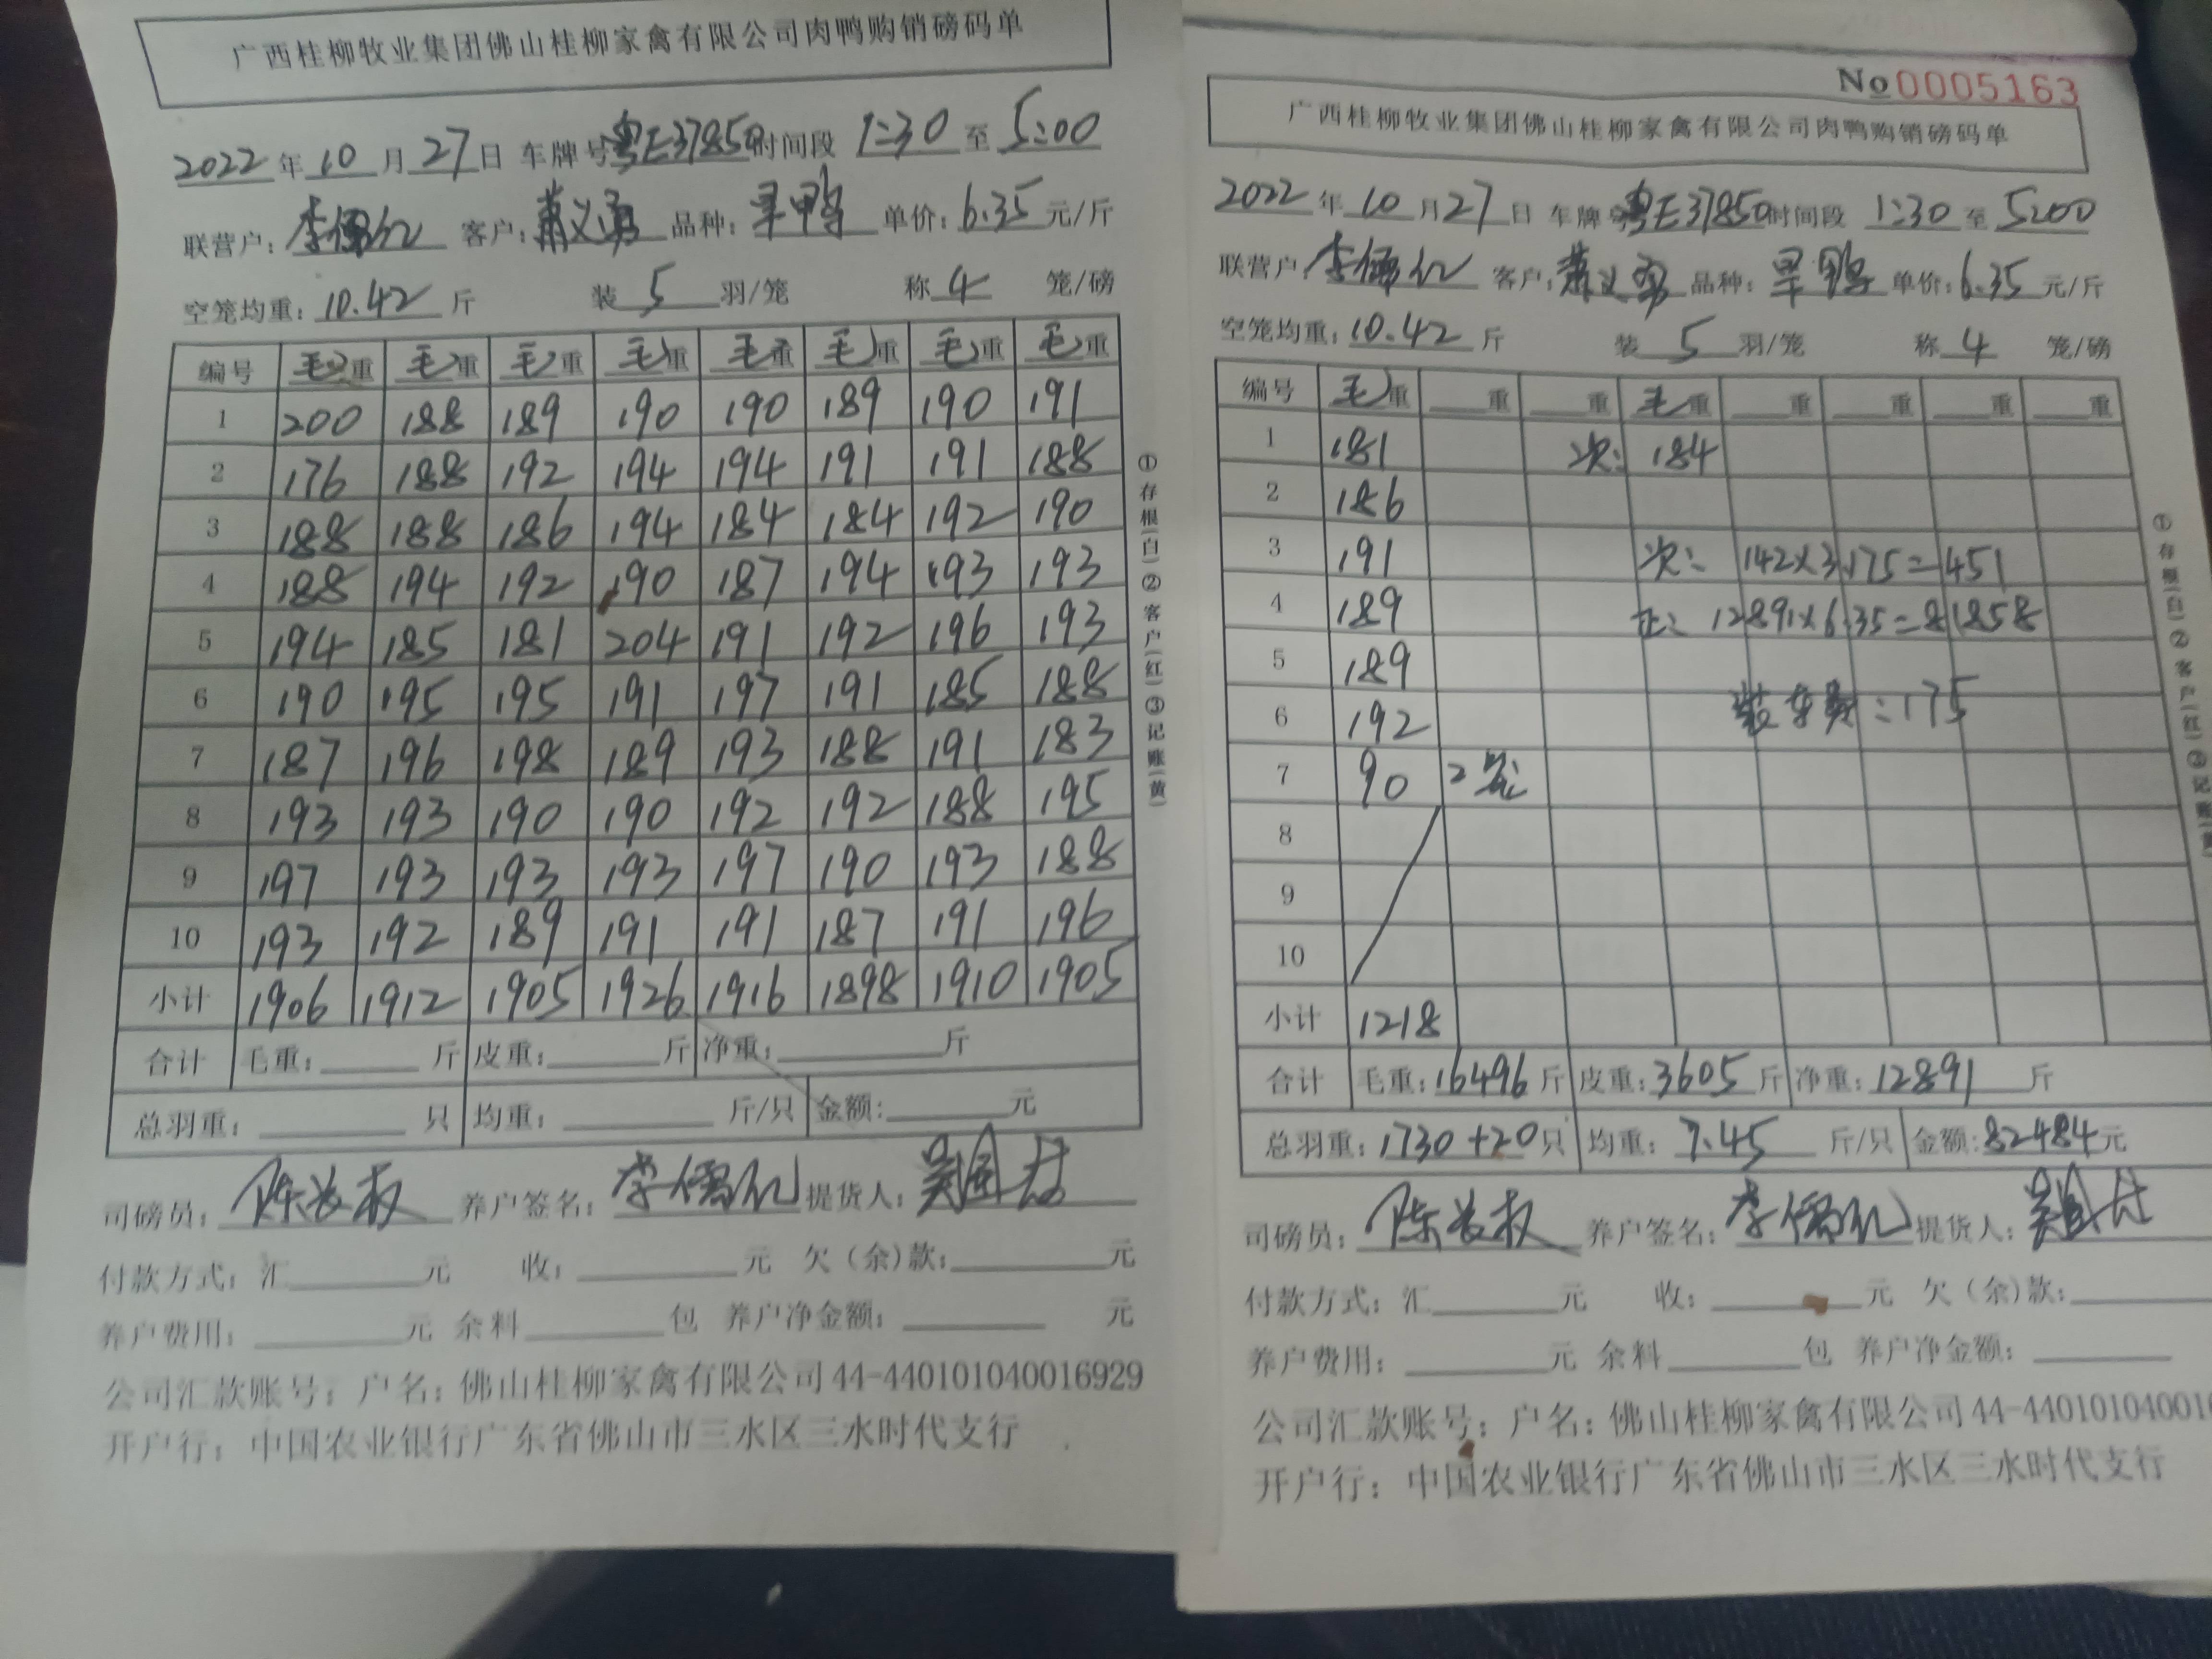 广西桂柳牧业集团佛山桂柳家禽有限公司肉鸭购销磅码单
2022年10月27日 车牌号粤E37850时间段 1:30至5:00
联营户:李儒 客户:萧义勇 品种:旱鸭 单价:6.35元/斤
空笼均重:10.42斤 装5羽/笼 称4笼/磅
编号 毛重 毛重 毛重 毛重 毛重 毛重 毛重 毛重
1 200 188 189 190 190 189 190 191
2 176 188 192 194 194 191 191 188
3 188 188 186 194 184 184 192 190
4 188 194 192 190 187 194 193 193
5 194 185 181 204 191 192 196 193
6 190 195 195 191 197 191 185 188
7 187 196 198 189 193 188 191 183
8 193 193 190 190 192 192 188 195
9 197 193 193 193 197 190 193 188
10 193 192 189 191 191 187 191 196
小计 1906 1912 1905 1926 1916 1898 1910 1905
合计 毛重:斤 皮重:斤 净重:斤
总羽重:只 均重:斤/只 金额:元
司磅员:陈 权 养户签名:李儒 提货人:吴国
付款方式:汇元 收:元 欠(余)款:元
养户费用:元 余料包 养户净金额:元
公司汇款账号:户名:佛山桂柳家禽有限公司44-440101040016929
开户行:中国农业银行广东省佛山市三水区三水时代支行
①存根(白)②客户(红)③记账(黄)
No 0005163
广西桂柳牧业集团佛山桂柳家禽有限公司肉鸭购销磅码单
2022年10月27日 车牌号粤E37850时间段 1:30至5:00
联营户:李儒 客户:萧义勇 品种:旱鸭 单价:6.35元/斤
空笼均重:10.42斤 装5羽/笼 称4笼/磅
编号 毛重 重 重 毛重 重 重 重 重
1 181 次: 184
2 186
3 191 次: 142×3.175=451
4 189 正: 12891×6.35=81858
5 189
6 192 装车费:175
7 90 2笼
8
9
10
小计 1218
合计 毛重:16496斤 皮重:3605斤 净重:12891斤
总羽重:1730+20只 均重:7.45斤/只 金额:82484元
司磅员:陈 权 养户签名:李儒 提货人:吴国
付款方式:汇元 收:元 欠(余)款:
养户费用:元 余料包 养户净金额:
公司汇款账号:户名:佛山桂柳家禽有限公司44-44010104001
开户行:中国农业银行广东省佛山市三水区三水时代支行
①存根(白)②客户(红)③记账